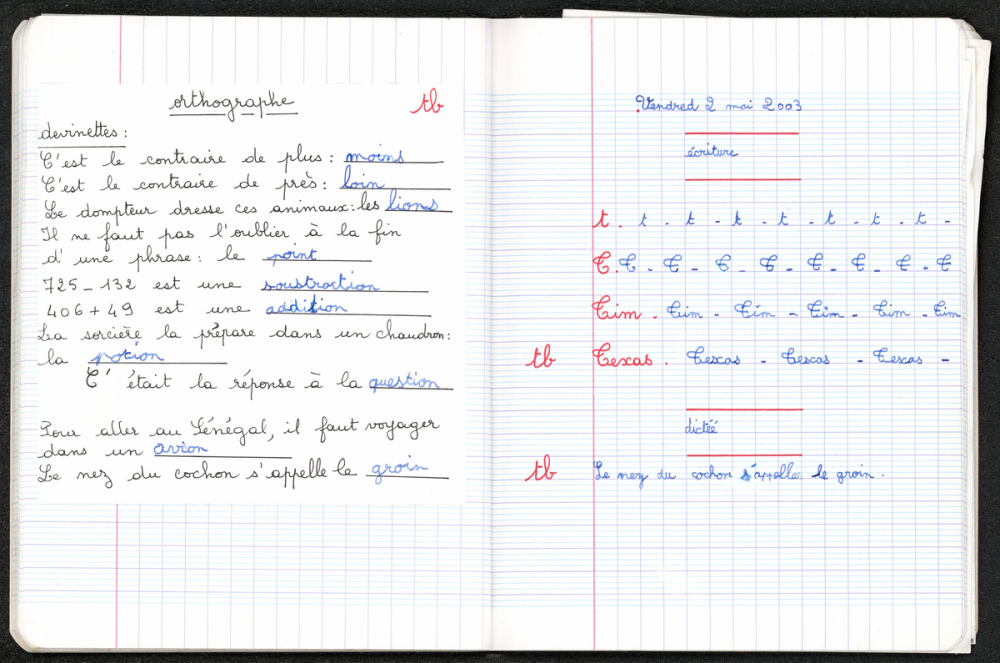 orthographe tb
devinettes :
C'est le contraire de plus : moins
C'est le contraire de près : loin
Le dompteur dresse ces animaux : les lions
Il ne faut pas l'oublier à la fin
d'une phrase : le point
725 - 132 est une soustraction
406 + 49 est une addition
La sorcière la prépare dans un chaudron :
la potion
C'était la réponse à la question
Pour aller au Sénégal, il faut voyager
dans un avion
Le nez du cochon s'appelle le groin
Vendred 2 mai 2003
écriture
t . t . t - t - t - t - t - t -
T . T - T - T - T - T - T - T - T
Tim . Tim - Tim - Tim - Tim - Tim
tb Texas . Texas - Texas - Texas -
dictée
tb Le nez du cochon s'appelle le groin .